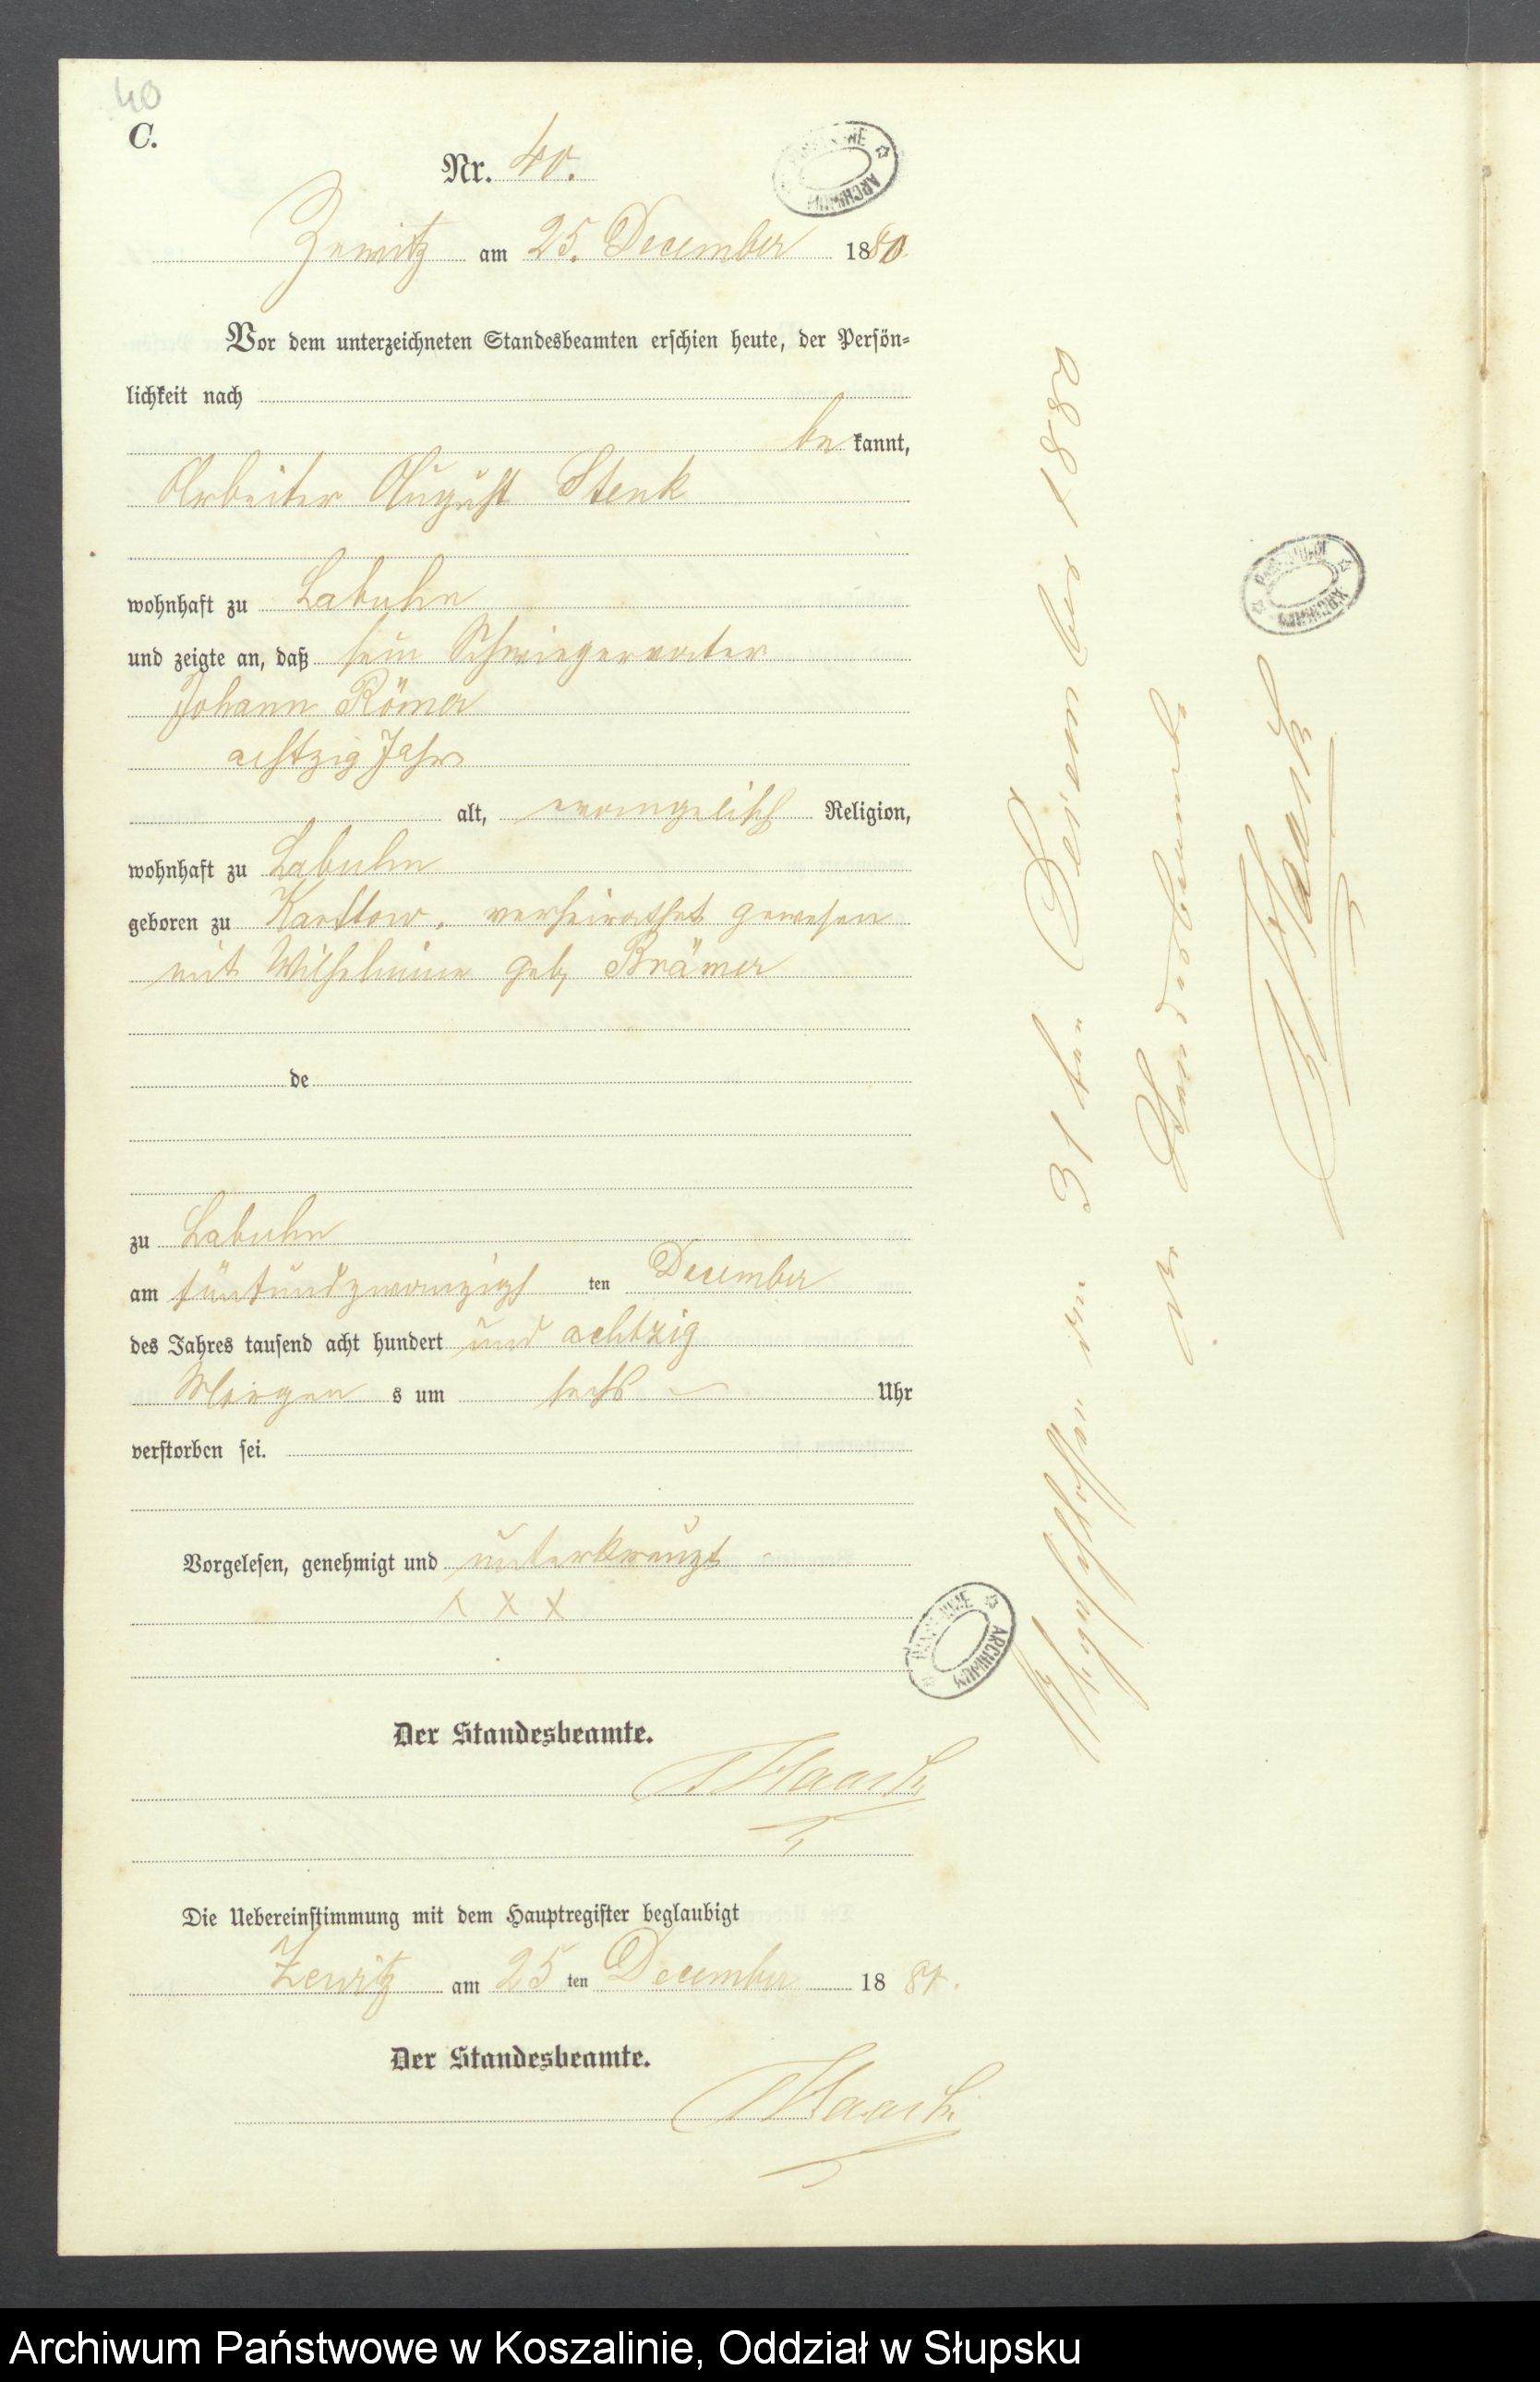 40
C.
Nr. 40.
Zewitz am 25. December 1880
Vor dem unterzeichneten Standesbeamten erschien heute, der Persön-
lichkeit nach
be kannt,
Arbeiter August Stenk
wohnhaft zu Labuhn
und zeigte an, daß sein Schwiegervater
Johann Römer
achtzig Jahr
alt, evangelisch Religion,
wohnhaft zu Labuhn
geboren zu Karstow, verheirathet gewesen
mit Wilhelmine geb. Brämer
de
zu Labuhn
am fünfundzwanzigs ten December
des Jahres tausend acht hundert und achtzig
Morgen s um sechs Uhr
verstorben sei.
Vorgelesen, genehmigt und unterkreuzt
X X X
Der Standesbeamte.
Haack
Die Uebereinstimmung mit dem Hauptregister beglaubigt
Zewitz am 25 ten December 18
Der Standesbeamte.
Haack
Abgeschlossen den 31ten Dezember 1880
Der Standesbeamte
Haack
ARCHIWUM
ARCHIWUM
ARCHIWUM
Archiwum Państwowe w Koszalinie, Oddział w Słupsku